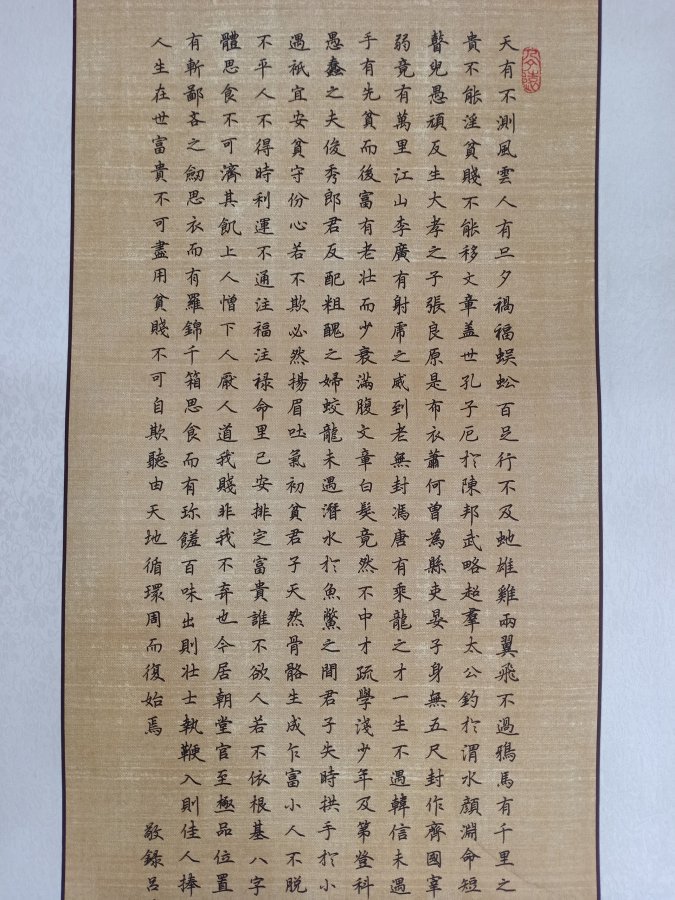 天有不測風雲人有旦夕禍福蜈蚣百足行不及虵雄雞兩翼飛不過鴉馬有千里之
貴不能淫貧賤不能移文章蓋世孔子厄於陳邦武略超羣太公釣於渭水顏淵命短
瞽叟愚頑反生大孝之子張良原是布衣蕭何曾為縣吏晏子身無五尺封作齊國宰
弱竟有萬里江山李廣有射虎之威到老無封馮唐有乘龍之才一生不遇韓信未遇
手有先貧而後富有老壯而少衰滿腹文章白髮竟然不中才疏學淺少年及第登科
愚蠢之夫俊秀郎君反配粗醜之婦蛟龍未遇潛水於魚鱉之間君子失時拱手於小
遇祇宜安貧守份心若不欺必然揚眉吐氣初貧君子天然骨骼生成乍富小人不脫
不平人不得時利運不通注福注祿命里已安排定富貴誰不欲人若不依根基八字
體思食不可濟其飢上人憎下人厭人道我賤非我不弃也今居朝堂官至極品位置
有斬鄙吝之劒思衣而有羅錦千箱思食而有珎饈百味出則壯士執鞭入則佳人捧
人生在世富貴不可盡用貧賤不可自欺聽由天地循環周而復始焉 敬錄呂